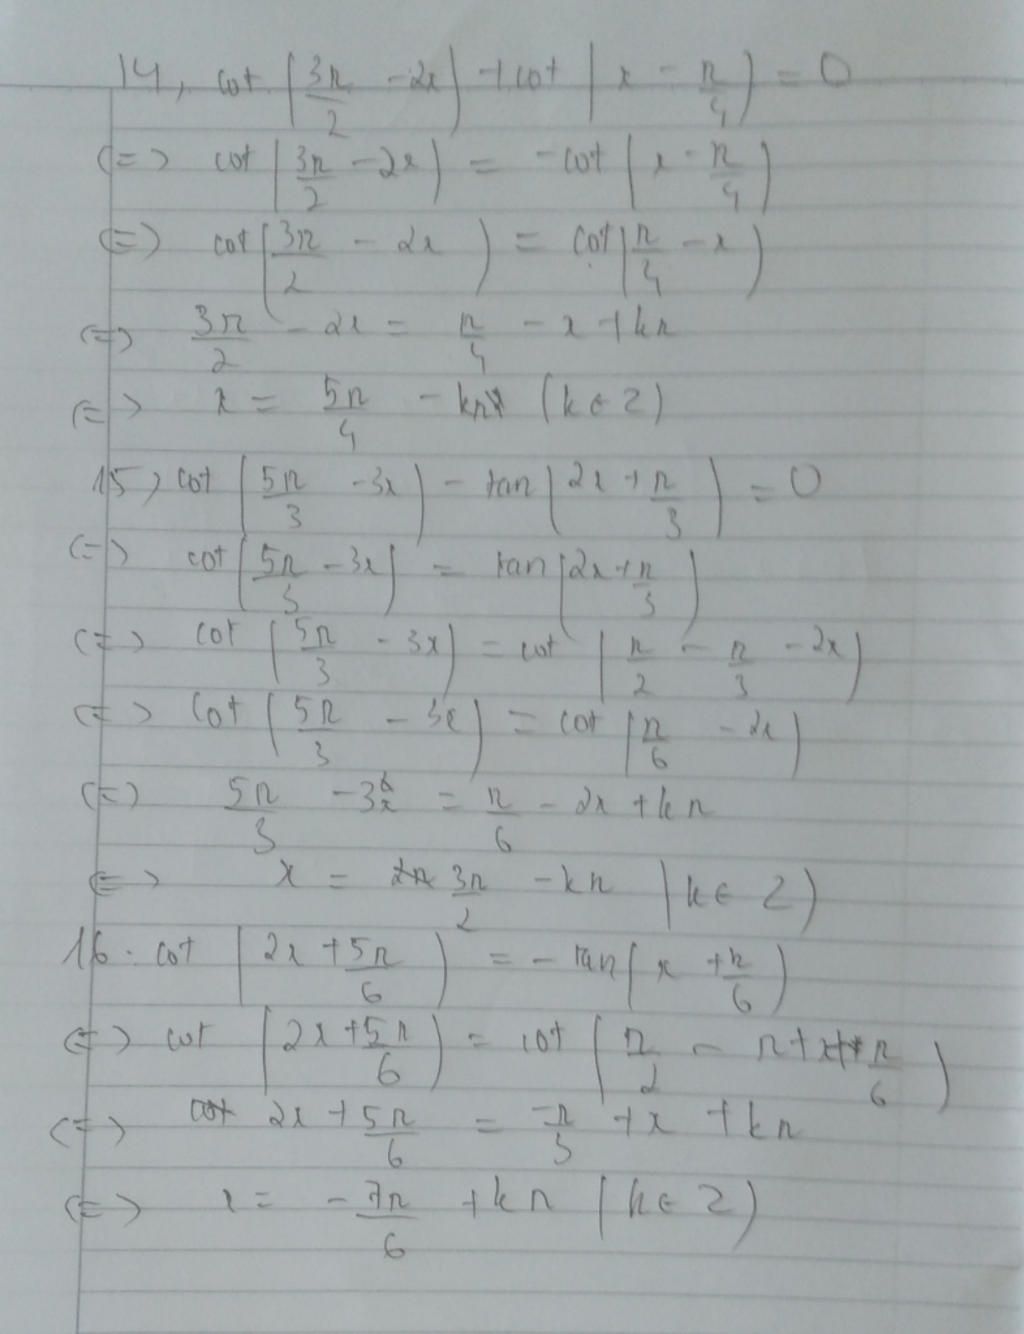 14, cot (3π/2 - 2x) + cot (x - π/4) = 0
<=> cot (3π/2 - 2x) = -cot (x - π/4)
<=> cot (3π/2 - 2x) = cot (π/4 - x)
<=> 3π/2 - 2x = π/4 - x + kπ
<=> x = 5π/4 - kπ (k ∈ Z)
15, cot (5π/3 - 3x) - tan (2x + π/3) = 0
<=> cot (5π/3 - 3x) = tan (2x + π/3)
<=> cot (5π/3 - 3x) = cot (π/2 - π/3 - 2x)
<=> cot (5π/3 - 3x) = cot (π/6 - 2x)
<=> 5π/3 - 3x = π/6 - 2x + kπ
<=> x = 3π/2 - kπ (k ∈ Z)
16. cot (2x + 5π/6) = - tan (x + π/6)
<=> cot (2x + 5π/6) = cot (π/2 - π + x + π/6)
<=> 2x + 5π/6 = -π/3 + x + kπ
<=> x = - 7π/6 + kπ (k ∈ Z)